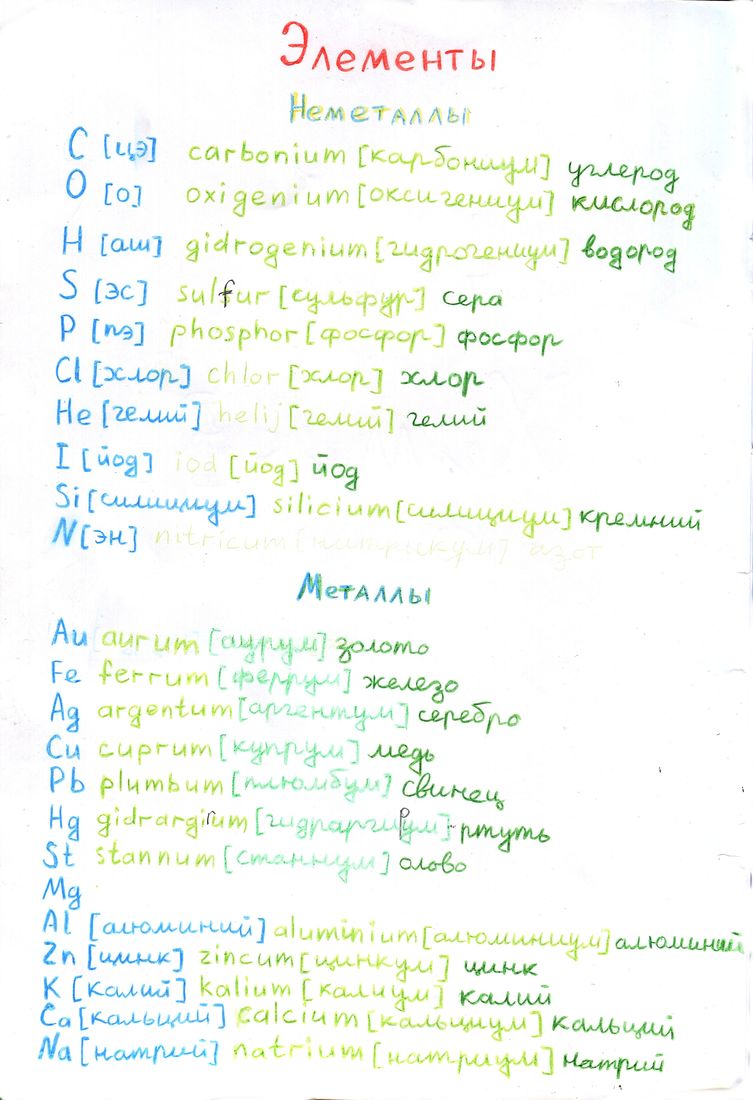 Элементы
Неметаллы
C [цэ] carbonium [карбониум] углерод
O [о] oxigenium [оксигениум] кислород
H [аш] gidrogenium [гидрогениум] водород
S [эс] sulfur [сульфур] сера
P [пэ] phosphor [фосфор] фосфор
Cl [хлор] chlor [хлор] хлор
He [гелий] helij [гелий] гелий
I [йод] iod [йод] йод
Si [силициум] silicium [силициум] кремний
N [эн] nitricum [нитрикум] азот
Металлы
Au aurum [аурум] золото
Fe ferrum [феррум] железо
Ag argentum [аргентум] серебро
Cu cuprum [купрум] медь
Pb plumbum [плюмбум] свинец
Hg gidrargirum [гидраргирум] - ртуть
St stannum [станнум] олово
Mg
Al [алюминий] aluminium [алюминиум] алюминий
Zn [цинк] zincum [цинкум] цинк
K [калий] kalium [калиум] калий
Ca [кальций] calcium [кальциум] кальций
Na [натрий] natrium [натриум] натрий